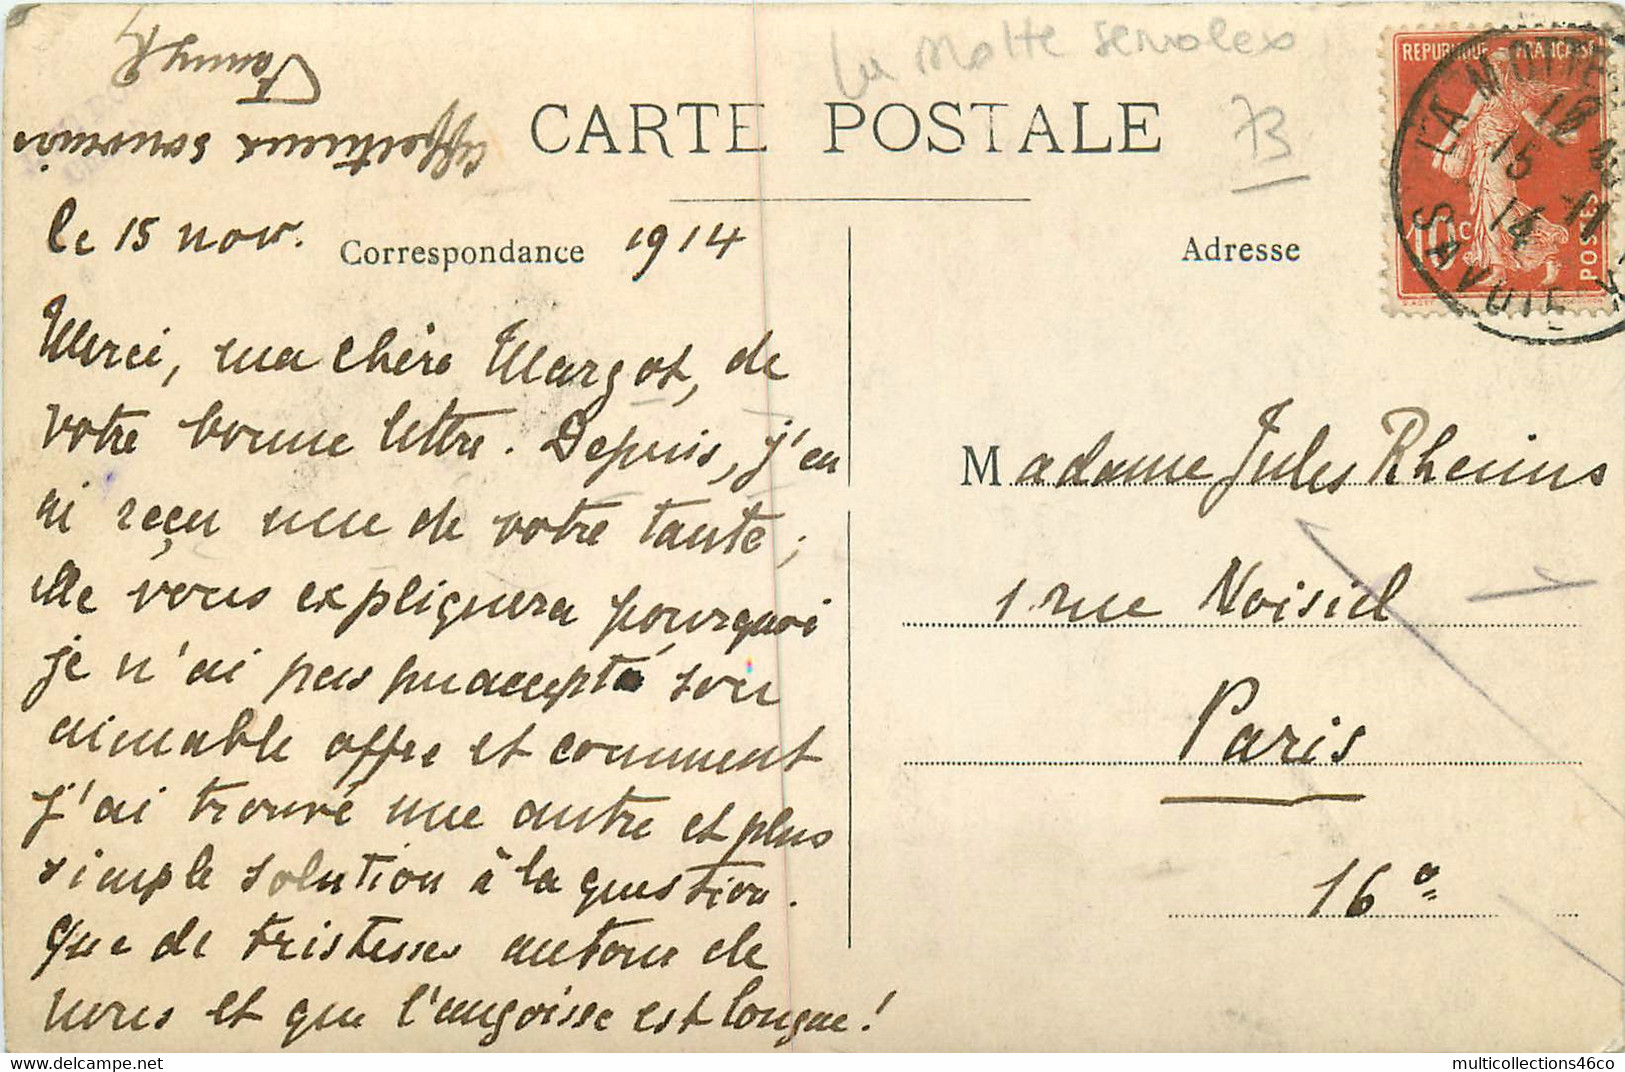 La Motte Servolex
73
CARTE POSTALE
REPUBLIQUE FRANCAISE
10c
POSTES
LA MOTTE
SAVOIE
12
15 -11
14
affectueux souvenir
le 15 nov. 1914
Correspondance
Adresse
Merci, ma chère Margot, de
votre bonne lettre. Depuis, j'en
ai reçu une de votre tante;
elle vous expliquera pourquoi
je n'ai pas pu accepté son
aimable offre et comment
j'ai trouvé une autre et plus
simple solution à la question.
Que de tristesses autour de
nous et que l'angoisse est longue!
Madame Jules Rheims
1 rue Noisiel
Paris
16e
multicollections46co